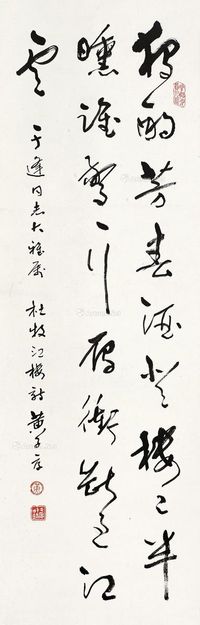 独酌芳春酒登楼已半
曛谁惊一行雁冲断过江
云
于逢同志大雅属 杜牧江楼诗 黄子厚